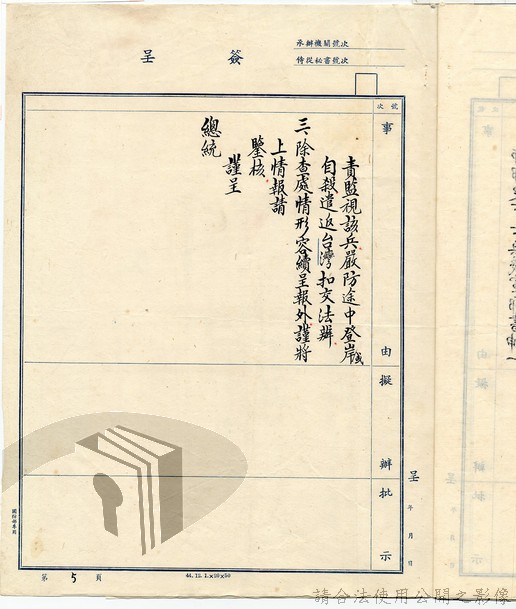 簽呈
承辦機關號次
侍從秘書號次
號次
事
由
擬
辦
批
示
責監視該兵嚴防途中登岸或
自殺遣返台灣扣交法辦
三、除查處情形容續呈報外謹將
上情報請
鑒核
謹呈
總統
呈
年
月
日
第5頁
44. 12. 1.×20×50
請合法使用公開之影像